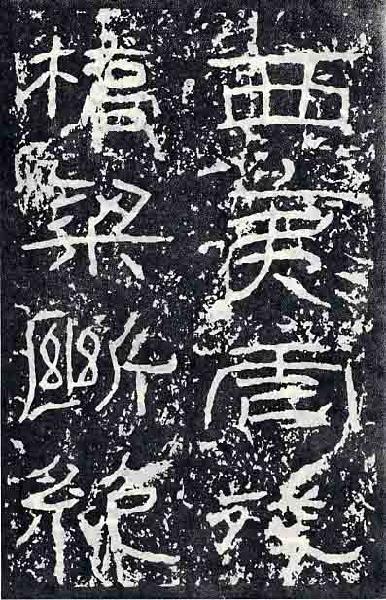 西夷虐殘
橋梁斷絶